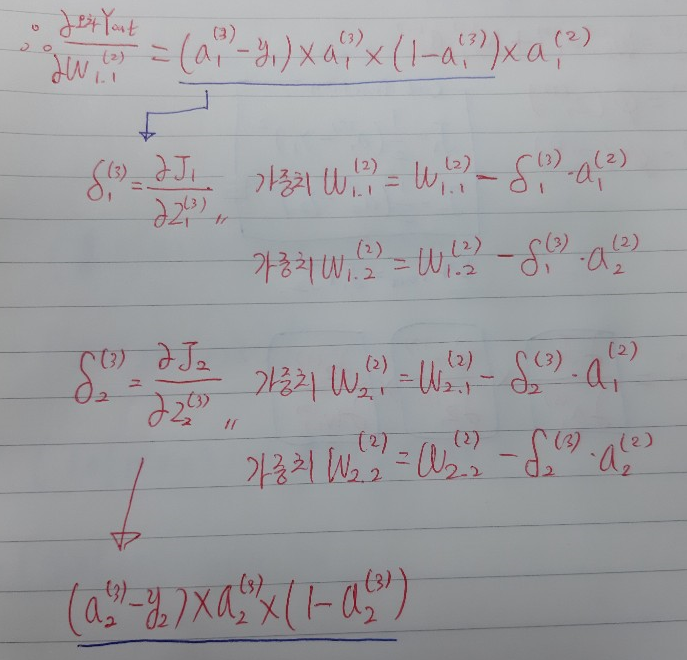 ∴ ∂오차Yout / ∂W₁.₁⁽²⁾ = (a₁⁽³⁾ - y₁) × a₁⁽³⁾ × (1 - a₁⁽³⁾) × a₁⁽²⁾
δ₁⁽³⁾ = ∂J₁ / ∂Z₁⁽³⁾ 〃 가중치 W₁.₁⁽²⁾ = W₁.₁⁽²⁾ - δ₁⁽³⁾ · a₁⁽²⁾
가중치 W₁.₂⁽²⁾ = W₁.₂⁽²⁾ - δ₁⁽³⁾ · a₂⁽²⁾
δ₂⁽³⁾ = ∂J₂ / ∂Z₂⁽³⁾ 〃 가중치 W₂.₁⁽²⁾ = W₂.₁⁽²⁾ - δ₂⁽³⁾ · a₁⁽²⁾
가중치 W₂.₂⁽²⁾ = W₂.₂⁽²⁾ - δ₂⁽³⁾ · a₂⁽²⁾
(a₂⁽³⁾ - y₂) × a₂⁽³⁾ × (1 - a₂⁽³⁾)